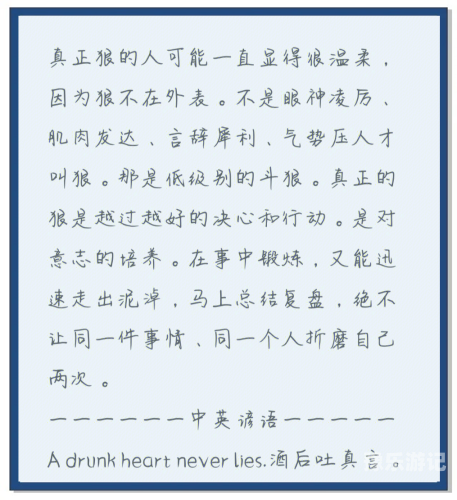 真正狠的人可能一直显得很温柔，
因为狠不在外表。不是眼神凌厉、
肌肉发达、言辞犀利、气势压人才
叫狠。那是低级别的斗狠。真正的
狠是越过越好的决心和行动。是对
意志的培养。在事中锻炼，又能迅
速走出泥淖，马上总结复盘，绝不
让同一件事情、同一个人折磨自己
两次。
——————中英谚语—————
A drunk heart never lies.酒后吐真言。
乐游记